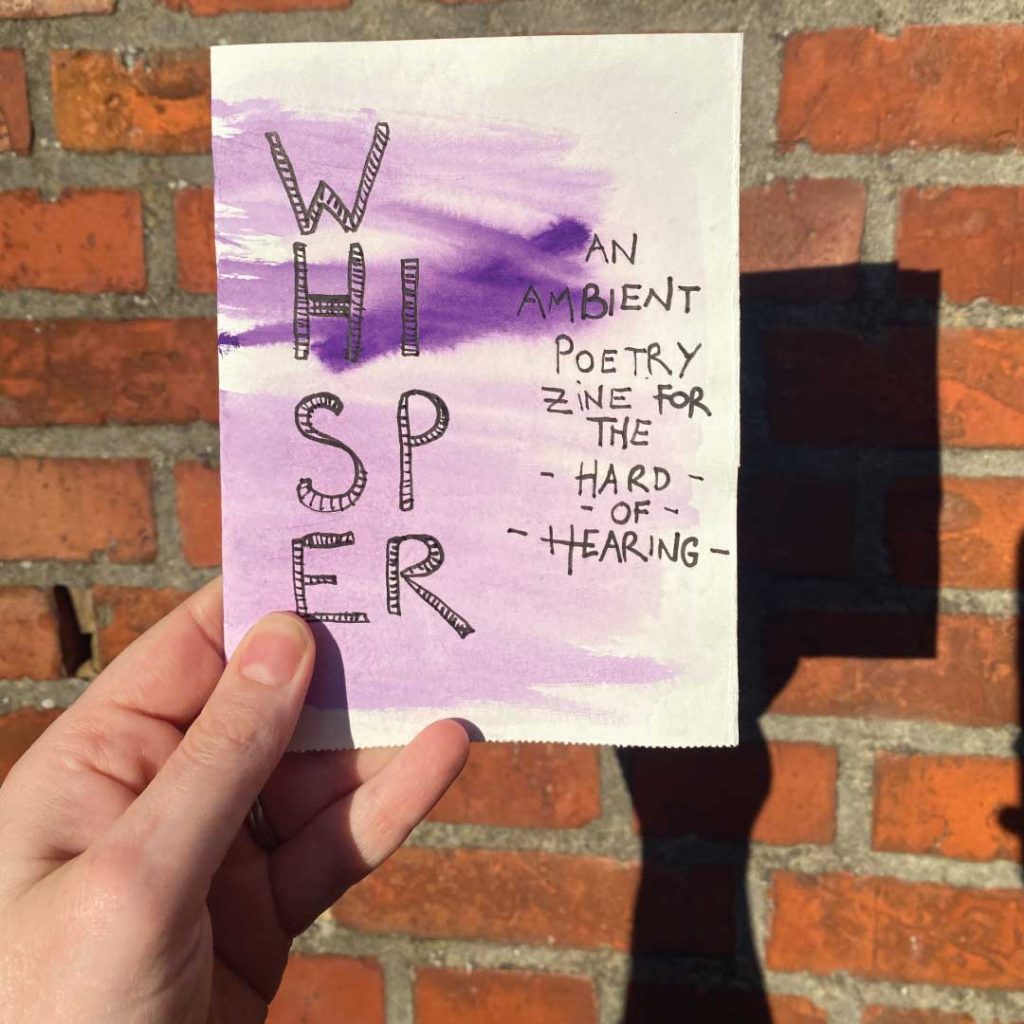 W
HI
SP
ER
AN
AMBIENT
POETRY
ZINE FOR
THE
- HARD -
- OF -
- HEARING -